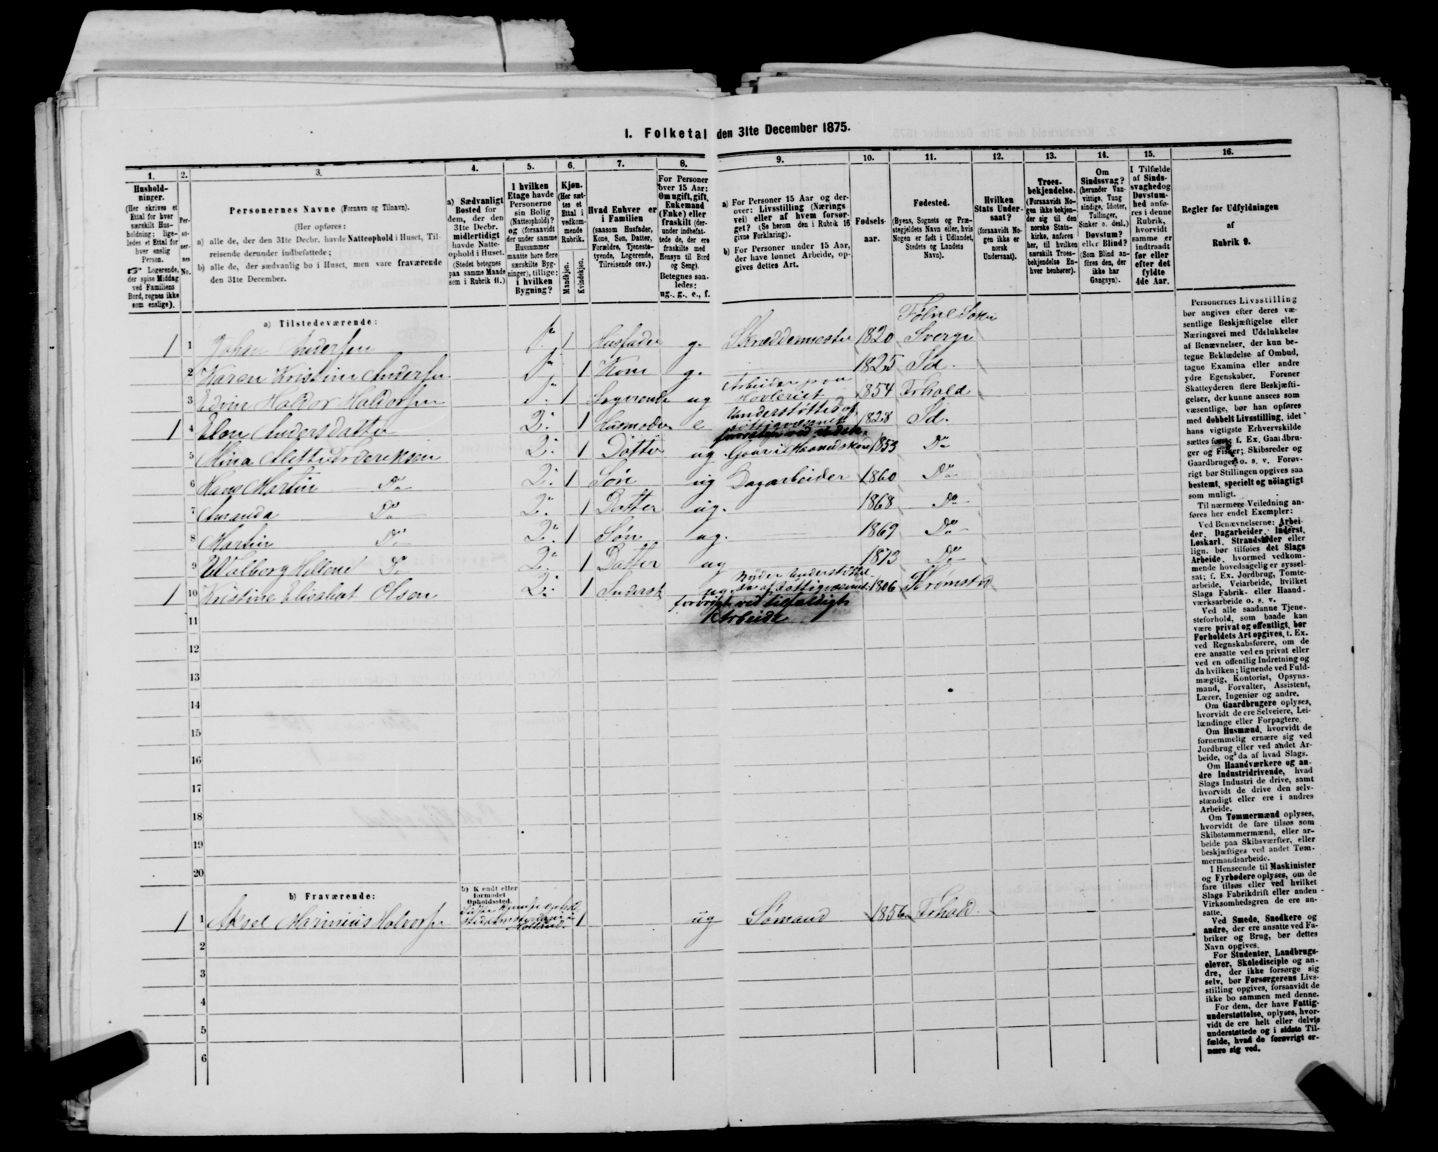 1. Folketal den 31te December 1875.
1. 2. 3. 4. 5. 6. 7. 8. 9. 10. 11. 12. 13. 14. 15. 16.
Hushold-
ninger.
(Her skrives et
Ettal for hver
særskilt Hus-
holdning; lige-
ledes et Ettal for
hver enslig
Person.
☞ Logerende,
der spise Middag
ved Familiens
Bord, regnes ikke
som enslige).
Per-
so-
ner-
nes
No.
Personernes Navne (Fornavn og Tilnavn).
(Her opføres:
a) alle de, der den 31te Decbr. havde Natteophold i Huset, Til-
reisende derunder indbefattede;
b) alle de, der sædvanlig bo i Huset, men vare fraværende
den 31te December.
a) Sædvanligt
Bosted for
dem, der den
31te Decbr.
midlertidigt
havde Natte-
ophold i Huset.
(Stedet betegnes
paa samme Maade
som i Rubrik 11.)
I hvilken
Etage havde
Personerne
sin Bolig
(Natteophold)?
og (forsaavidt
der under samme
Husnummer
maatte høre flere
særskilte Byg-
ninger), tillige:
i hvilken
Bygning?
Kjøn.
(Her sæt-
tes et
Ettal i
vedkom-
mende
Rubrik.
Mandkjøn.
Kvindekjøn.
Hvad Enhver er
i Familien
(saasom Husfader,
Kone, Søn, Datter,
Forældre, Tjeneste-
tyende, Logerende,
Tilreisende osv.)
For Personer
over 15 Aar:
Om ugift, gift,
Enkemand
(Enke) eller
fraskilt (der-
under indbefat-
tede de, der ere
fraskilte med
Hensyn til Bord
og Seng).
Betegnes saa-
ledes:
ug., g., e., f.
a) For Personer 15 Aar og der-
over: Livsstilling (Nærings-
vei) eller af hvem forsør-
get? (Se herom den i Rubrik 16
givne Forklaring).
b) For Personer under 15 Aar,
der have lønnet Arbeide, op-
gives dettes Art.
Fødsels-
aar.
Fødested.
(Byens, Sognets og Præ-
stegjeldets Navn eller, hvis
Nogen er født i Udlandet,
Stedets og Landets
Navn).
Hvilken
Stats Under-
saat?
(forsaavidt No-
gen ikke er
norsk
Undersaat).
Troes-
bekjendelse.
(Forsaavidt No-
gen ikke bekjen-
der sig til den
norske Stats-
kirke, anføres
her, til hvilken
særskilt Troes-
bekjendelse En-
hver henhører).
Om
Sindssvag?
(herunder Van-
vittige, Tung-
sindige, Idioter,
Tullinger,
Sinker o. desl.)
Døvstum?
eller Blind?
(Som Blind an-
føres den, der
ikke har
Gangsyn).
I Tilfælde
af Sinds-
svaghed og
Døvstum-
hed anfø-
res i denne
Rubrik,
hvorvidt
samme er
indtraadt
før eller
efter det
fyldte
4de Aar.
Regler for Udfyldningen
af
Rubrik 9.
a) Tilstedeværende:
1 1 Johan Andersen 1 Husfader g. Skræddermester 1820 Sverge
2 Karen Kristine Andersen 1 Kone g. 1825 Fd.
3 Edvin Haldor Haldorsen 1 Logerende ug Arbeider paa Høvleriet 1854 Frhald
1 4 Elen Andersdatter 2. 1 Husmoder e Understøttes af 1828 Fd.
5 Mina Mette Frederiksen 2. 1 Datter ug 1853 Do
6 Hans Martin Do 2. 1 Søn ug Dagarbeider 1860 Do
7 Amanda Do 2. 1 Datter ug. 1868 Do
8 Martin Do 2. 1 Søn ug. 1869 Do
9 Walborg Helene Do 2. 1 Datter ug 1873 Do
1 10 Kristine Elisabet Olsen 2. 1 Inderst ug Nyder Understøttelse af Fattigvæsenet 1806 Strømstad
forøvrigt ved tilfældigt
Arbeide
11
12
13
14
15
16
17
18
19
20
b) Fraværende:
b) Kjendt eller
formodet
Opholdssted.
1 1 Axel Marinius Haldorsen 1 ug Sømand 1856 Frhald.
2
3
4
5
6
Personernes Livsstilling
bør angives efter deres væ-
sentlige Beskjæftigelse eller
Næringsvei med Udelukkelse
af Benævnelser, der kun be-
tegne Beklædelse af Ombud,
tagne Examina eller andre
ydre Egenskaber. Forener
Skatteyderen flere Beskjæfti-
gelser, der kunne ansees som
væsentlige, bør han opføres
med dobbelt Livsstilling, idet
hans vigtigste Erhvervskilde
sættes først; f. Ex. Gaardbru-
ger og Fisker; Skibsreder og
Gaardbruger o. s. v. Forøv-
rigt bør Stillingen opgives saa
bestemt, specielt og nøiagtigt
som muligt.
Til nærmere Veiledning an-
føres her endel Exempler:
Ved Benævnelserne: Arbei-
der, Dagarbeider, Inderst,
Løskarl, Strandsidder eller
lign. bør tilføies det Slags
Arbeide, hvormed vedkom-
mende hovedsagelig er syssel-
sat; f. Ex. Jordbrug, Tomte-
arbeide, Veiarbeide, hvilket
Slags Fabrik- eller Haand-
værksarbeide o. s. v.
Ved alle saadanne Tjene-
steforhold, som baade kan
være privat og offentligt, bør
Forholdets Art opgives, t. Ex.
ved Regnskabsførere, om de
ere ansatte ved en privat eller
ved en offentlig Indretning og
da hvilken; lignende ved Fuld-
mægtig, Kontorist, Opsyns-
mand, Forvalter, Assistent,
Lærer, Ingeniør og andre.
Om Gaardbrugere oplyses,
hvorvidt de ere Selveiere, Lei-
lændinge eller Forpagtere.
Om Husmænd, hvorvidt de
fornemmelig ernære sig ved
Jordbrug eller ved andet Ar-
beide, og da af hvad Slags.
Om Haandværkere og an-
dre Industridrivende, hvad
Slags Industri de drive, samt
hvorvidt de drive den selv-
stændigt eller ere i andres
Arbeide.
Om Tømmermænd oplyses,
hvorvidt de fare tilsøs som
Skibstømmermænd, eller ar-
beide paa Skibsværfter, eller
beskjæftiges ved andet Tøm-
mermandsarbeide.
I Henseende til Maskinister
og Fyrbødere oplyses, om de
fare tilsøs eller ved hvilket
Slags Fabrikdrift eller anden
Virksomhedsgren de ere an-
satte.
Ved Smede, Snedkere og
andre, der ere ansatte ved Fa-
briker og Brug, bør dettes
Navn opgives.
For Studenter, Landbrugs-
elever, Skoledisciple og an-
dre, der ikke forsørge sig
selv, bør Forsørgerens Livs-
stilling opgives, forsaavidt de
ikke bo sammen med denne.
For dem, der have Fattig-
understøttelse, oplyses, hvor-
vidt de ere helt eller delvis
understøttede og i sidste Til-
fælde, hvad de forøvrigt er-
nære sig ved.